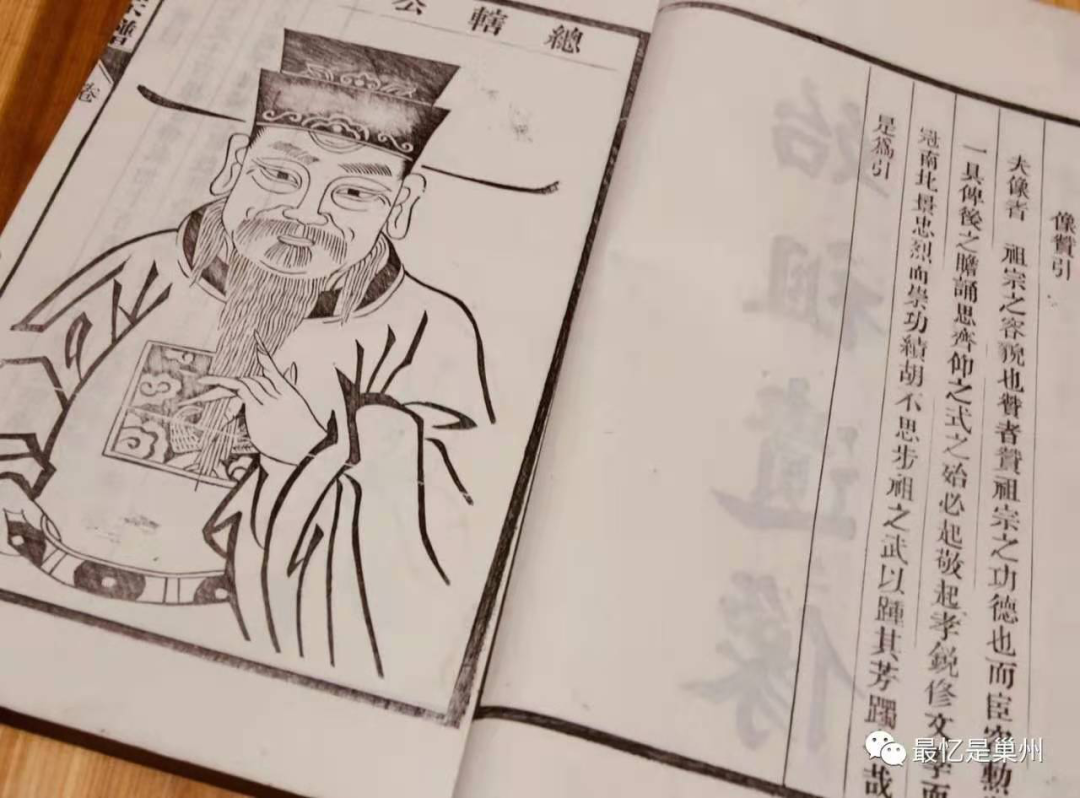 像贊引
夫像者 祖宗之容貌也贊者贊祖宗之功德也而臣
一具俾後之瞻誦思齊仰之式之始必起敬起孝鋭修文
冠南北景忠烈而崇功績胡不思步祖之武以踵其芳躅哉
是為引
始祖遺像
總轄公
卷
最忆是巢州